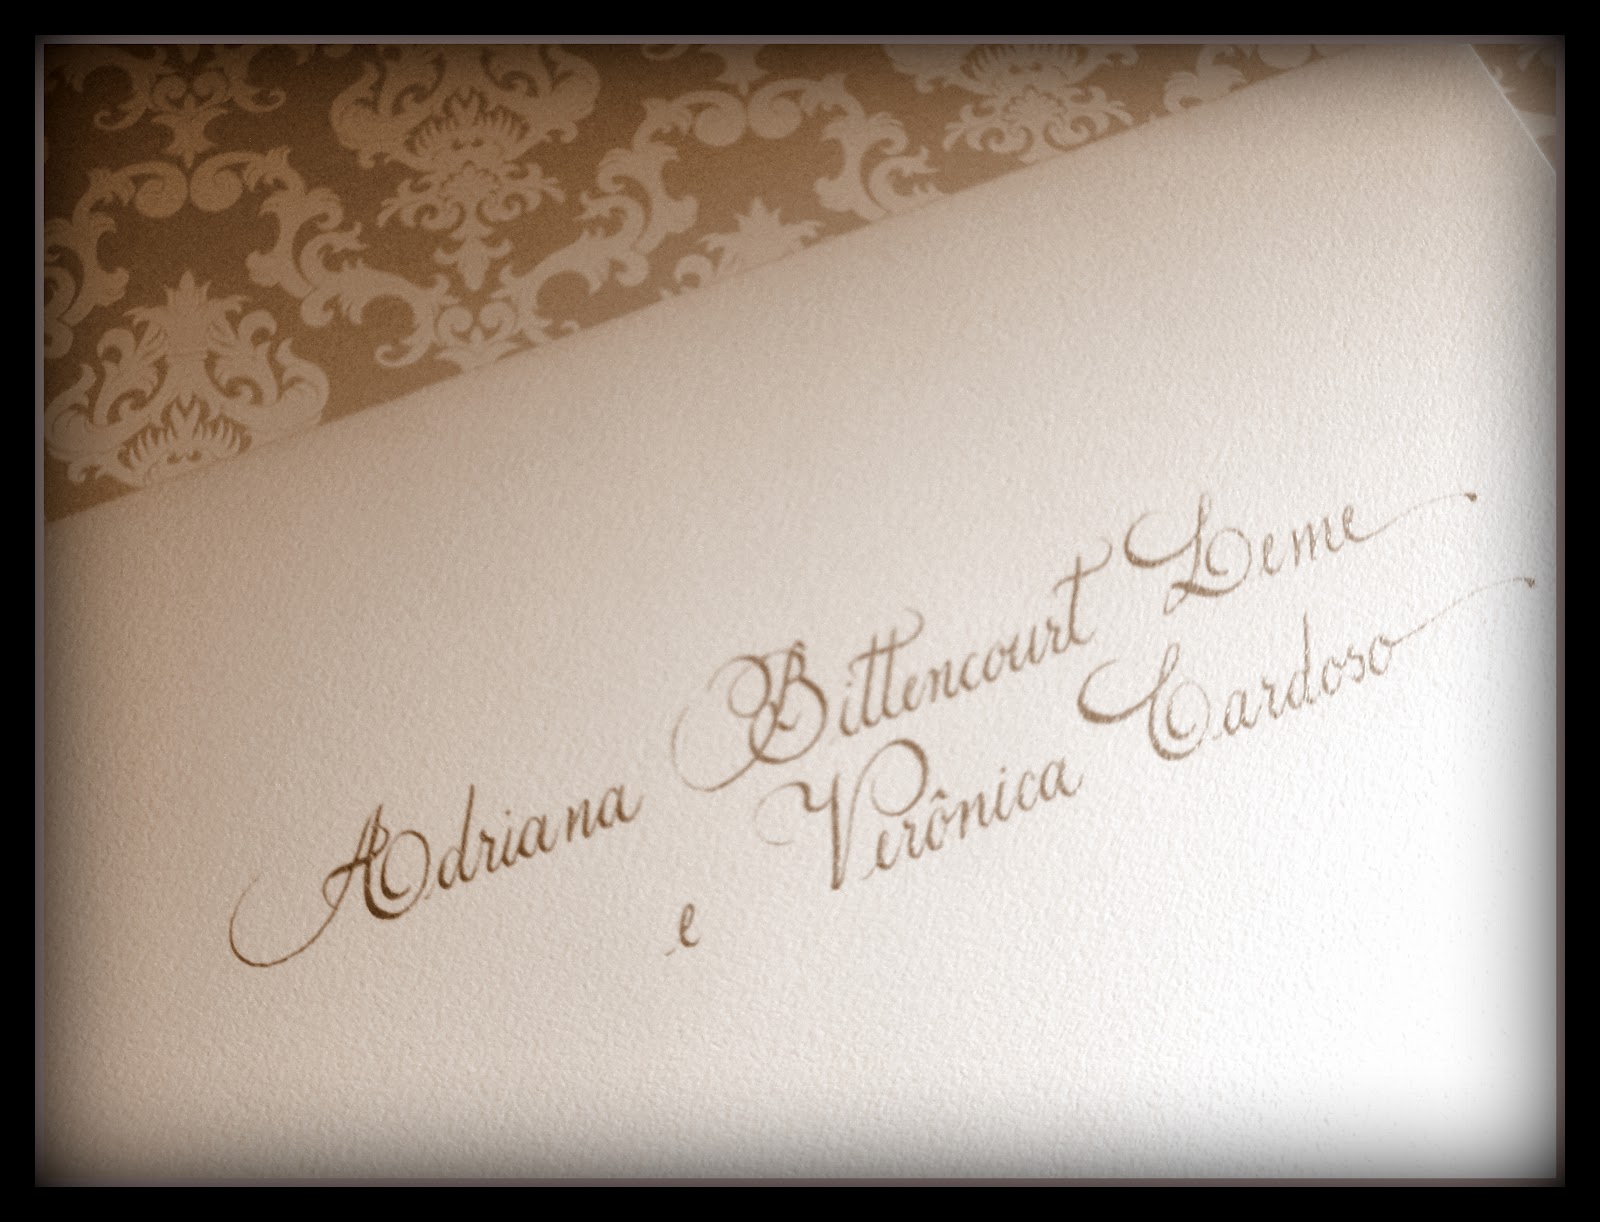 Adriana Bittencourt Leme
e Verônica Cardoso